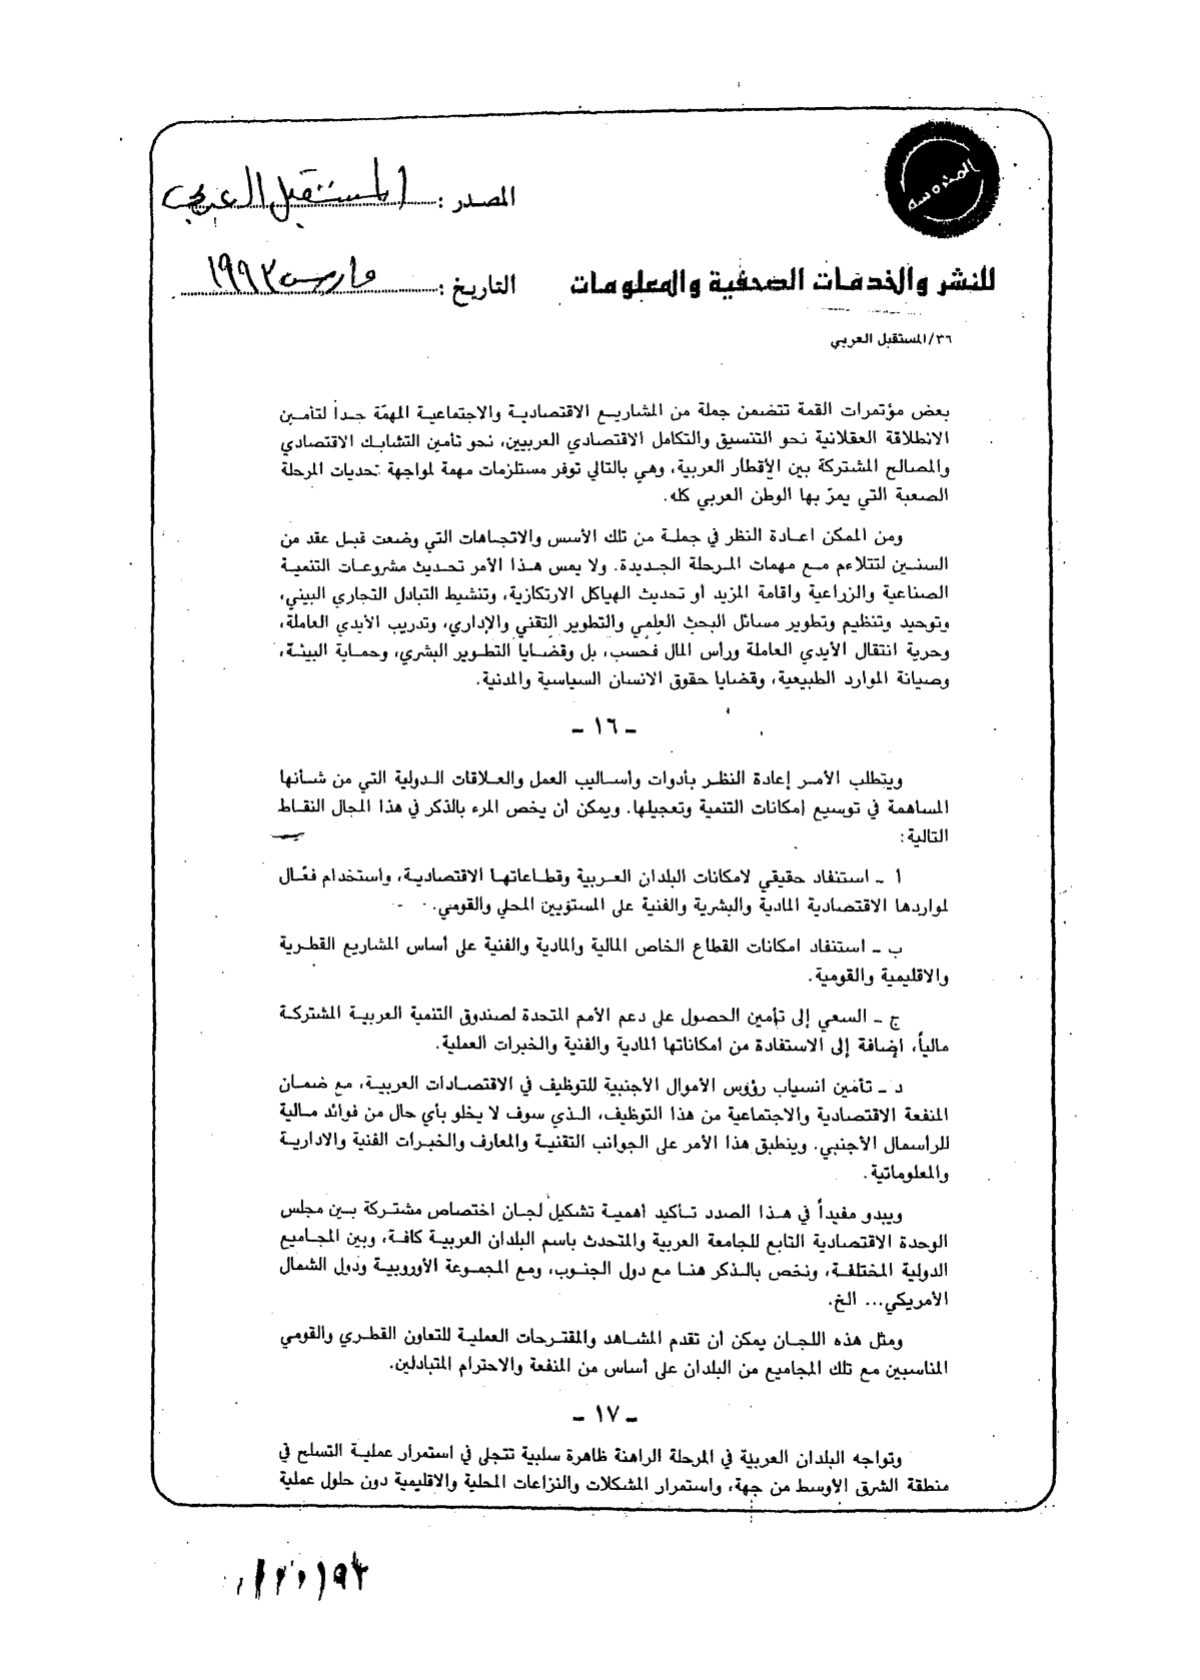 المحروسة
المصدر : المستقبل العربي
للنشر والخدمات الصحفية والمعلومات
التاريخ : مارس ١٩٩٣
٣٦/المستقبل العربي
بعض مؤتمرات القمة تتضمن جملة من المشاريع الاقتصادية والاجتماعية المهمّة جداً لتأمين
الانطلاقة العقلانية نحو التنسيق والتكامل الاقتصادي العربيين، نحو تأمين التشابك الاقتصادي
والمصالح المشتركة بين الأقطار العربية، وهي بالتالي توفر مستلزمات مهمة لمواجهة تحديات المرحلة
الصعبة التي يمرّ بها الوطن العربي كله.
ومن الممكن اعادة النظر في جملة من تلك الأسس والاتجاهات التي وضعت قبل عقد من
السنين لتتلاءم مع مهمات المرحلة الجديدة. ولا يمس هذا الأمر تحديث مشروعات التنمية
الصناعية والزراعية واقامة المزيد أو تحديث الهياكل الارتكازية، وتنشيط التبادل التجاري البيني،
وتوحيد وتنظيم وتطوير مسائل البحث العلمي والتطوير التقني والإداري، وتدريب الأيدي العاملة،
وحرية انتقال الأيدي العاملة ورأس المال فحسب، بل وقضايا التطوير البشري، وحماية البيئة،
وصيانة الموارد الطبيعية، وقضايا حقوق الانسان السياسية والمدنية.
- ١٦ -
ويتطلب الأمر إعادة النظر بأدوات وأساليب العمل والعلاقات الدولية التي من شأنها
المساهمة في توسيع إمكانات التنمية وتعجيلها. ويمكن أن يخص المرء بالذكر في هذا المجال النقاط
التالية:
أ - استنفاد حقيقي لامكانات البلدان العربية وقطاعاتها الاقتصادية، واستخدام فعّال
لمواردها الاقتصادية المادية والبشرية والفنية على المستويين المحلي والقومي.
ب - استنفاد امكانات القطاع الخاص المالية والمادية والفنية على أساس المشاريع القطرية
والاقليمية والقومية.
ج - السعي إلى تأمين الحصول على دعم الأمم المتحدة لصندوق التنمية العربية المشتركة
مالياً، إضافة إلى الاستفادة من امكاناتها المادية والفنية والخبرات العملية.
د - تأمين انسياب رؤوس الأموال الأجنبية للتوظيف في الاقتصادات العربية، مع ضمان
المنفعة الاقتصادية والاجتماعية من هذا التوظيف، الذي سوف لا يخلو بأي حال من فوائد مالية
للرأسمال الأجنبي. وينطبق هذا الأمر على الجوانب التقنية والمعارف والخبرات الفنية والادارية
والمعلوماتية.
ويبدو مفيداً في هذا الصدد تأكيد أهمية تشكيل لجان اختصاص مشتركة بين مجلس
الوحدة الاقتصادية التابع للجامعة العربية والمتحدث باسم البلدان العربية كافة، وبين المجاميع
الدولية المختلفة، ونخص بالذكر هنا مع دول الجنوب، ومع المجموعة الأوروبية ودول الشمال
الأمريكي... الخ.
ومثل هذه اللجان يمكن أن تقدم المشاهد والمقترحات العملية للتعاون القطري والقومي
المناسبين مع تلك المجاميع من البلدان على أساس من المنفعة والاحترام المتبادلين.
- ١٧ -
وتواجه البلدان العربية في المرحلة الراهنة ظاهرة سلبية تتجلى في استمرار عملية التسلح في
منطقة الشرق الأوسط من جهة، واستمرار المشكلات والنزاعات المحلية والاقليمية دون حلول عملية